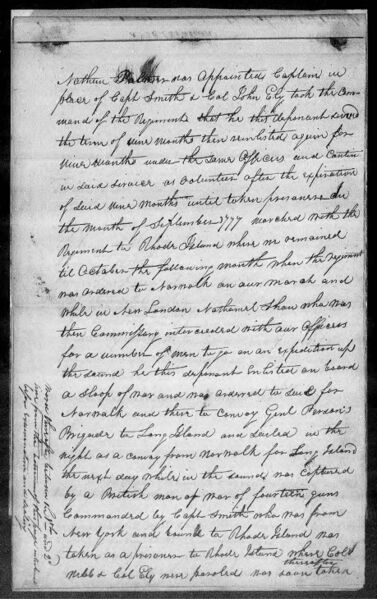 Nathan Palmer was Appointed Captain in
place of Capt Smith & Col John Ely took the Com-
mand of the Regiment that he this deponent served
the term of nine months then reinlisted again for
Nine Months under the Same Officers and Contin
in said service as Volunteer after the expiration
of said nine months until taken prisoner In
the Month of September 1777 marched with the
Regiment to Rhode Island where we remained
til October the following month when the regiment
was ordered to Norwalk on our march and
while in New London Nathaniel Shaw who was
then Commissary interceeded with our Officers
for a number of men to go on an expedition up
the sound he this deponent Enlisted on board
a Sloop of War and was ordered to sail for
Norwalk and their to Convoy Genl Parson's
Brigade to Long Island and sailed in the
night as a convoy from Norwalk for Long Island
the next day while in the sound was captured
by a British man of war of fourteen guns
Commanded by Capt Smith who was from
New York and bound to Rhode Island was
taken as a prisoner to Rhode Island where Col
thereafter
Webb & Col Ely were paroled was soon taken